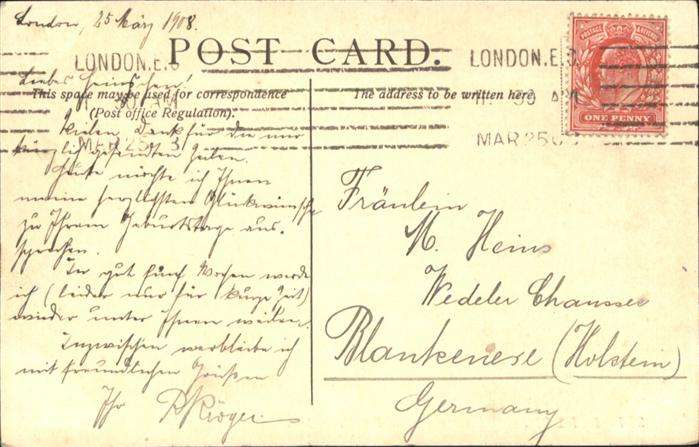 London, 25 März 1908.
POST CARD.
LONDON.E.C
LONDON.E.C.
This space may be used for correspondence
(Post office Regulation).
The address to be written here.
MAR 25
MAR 25 0
ONE PENNY
Vielen Dank für die mir
kürzlich gesandten Zeilen.
Heute möchte ich Ihnen
meine herzlichsten Glückwünsche
zu Ihrem Geburtstage aus-
sprechen.
In gut fünf Wochen werde
ich (leider nur für kurze Zeit)
wieder unter Ihnen weilen.
Inzwischen verbleibe ich
mit freundlichen Grüßen
Ihr
Fräulein
M. Heins
Wedeler Chaussee
Blankenese (Holstein)
Germany